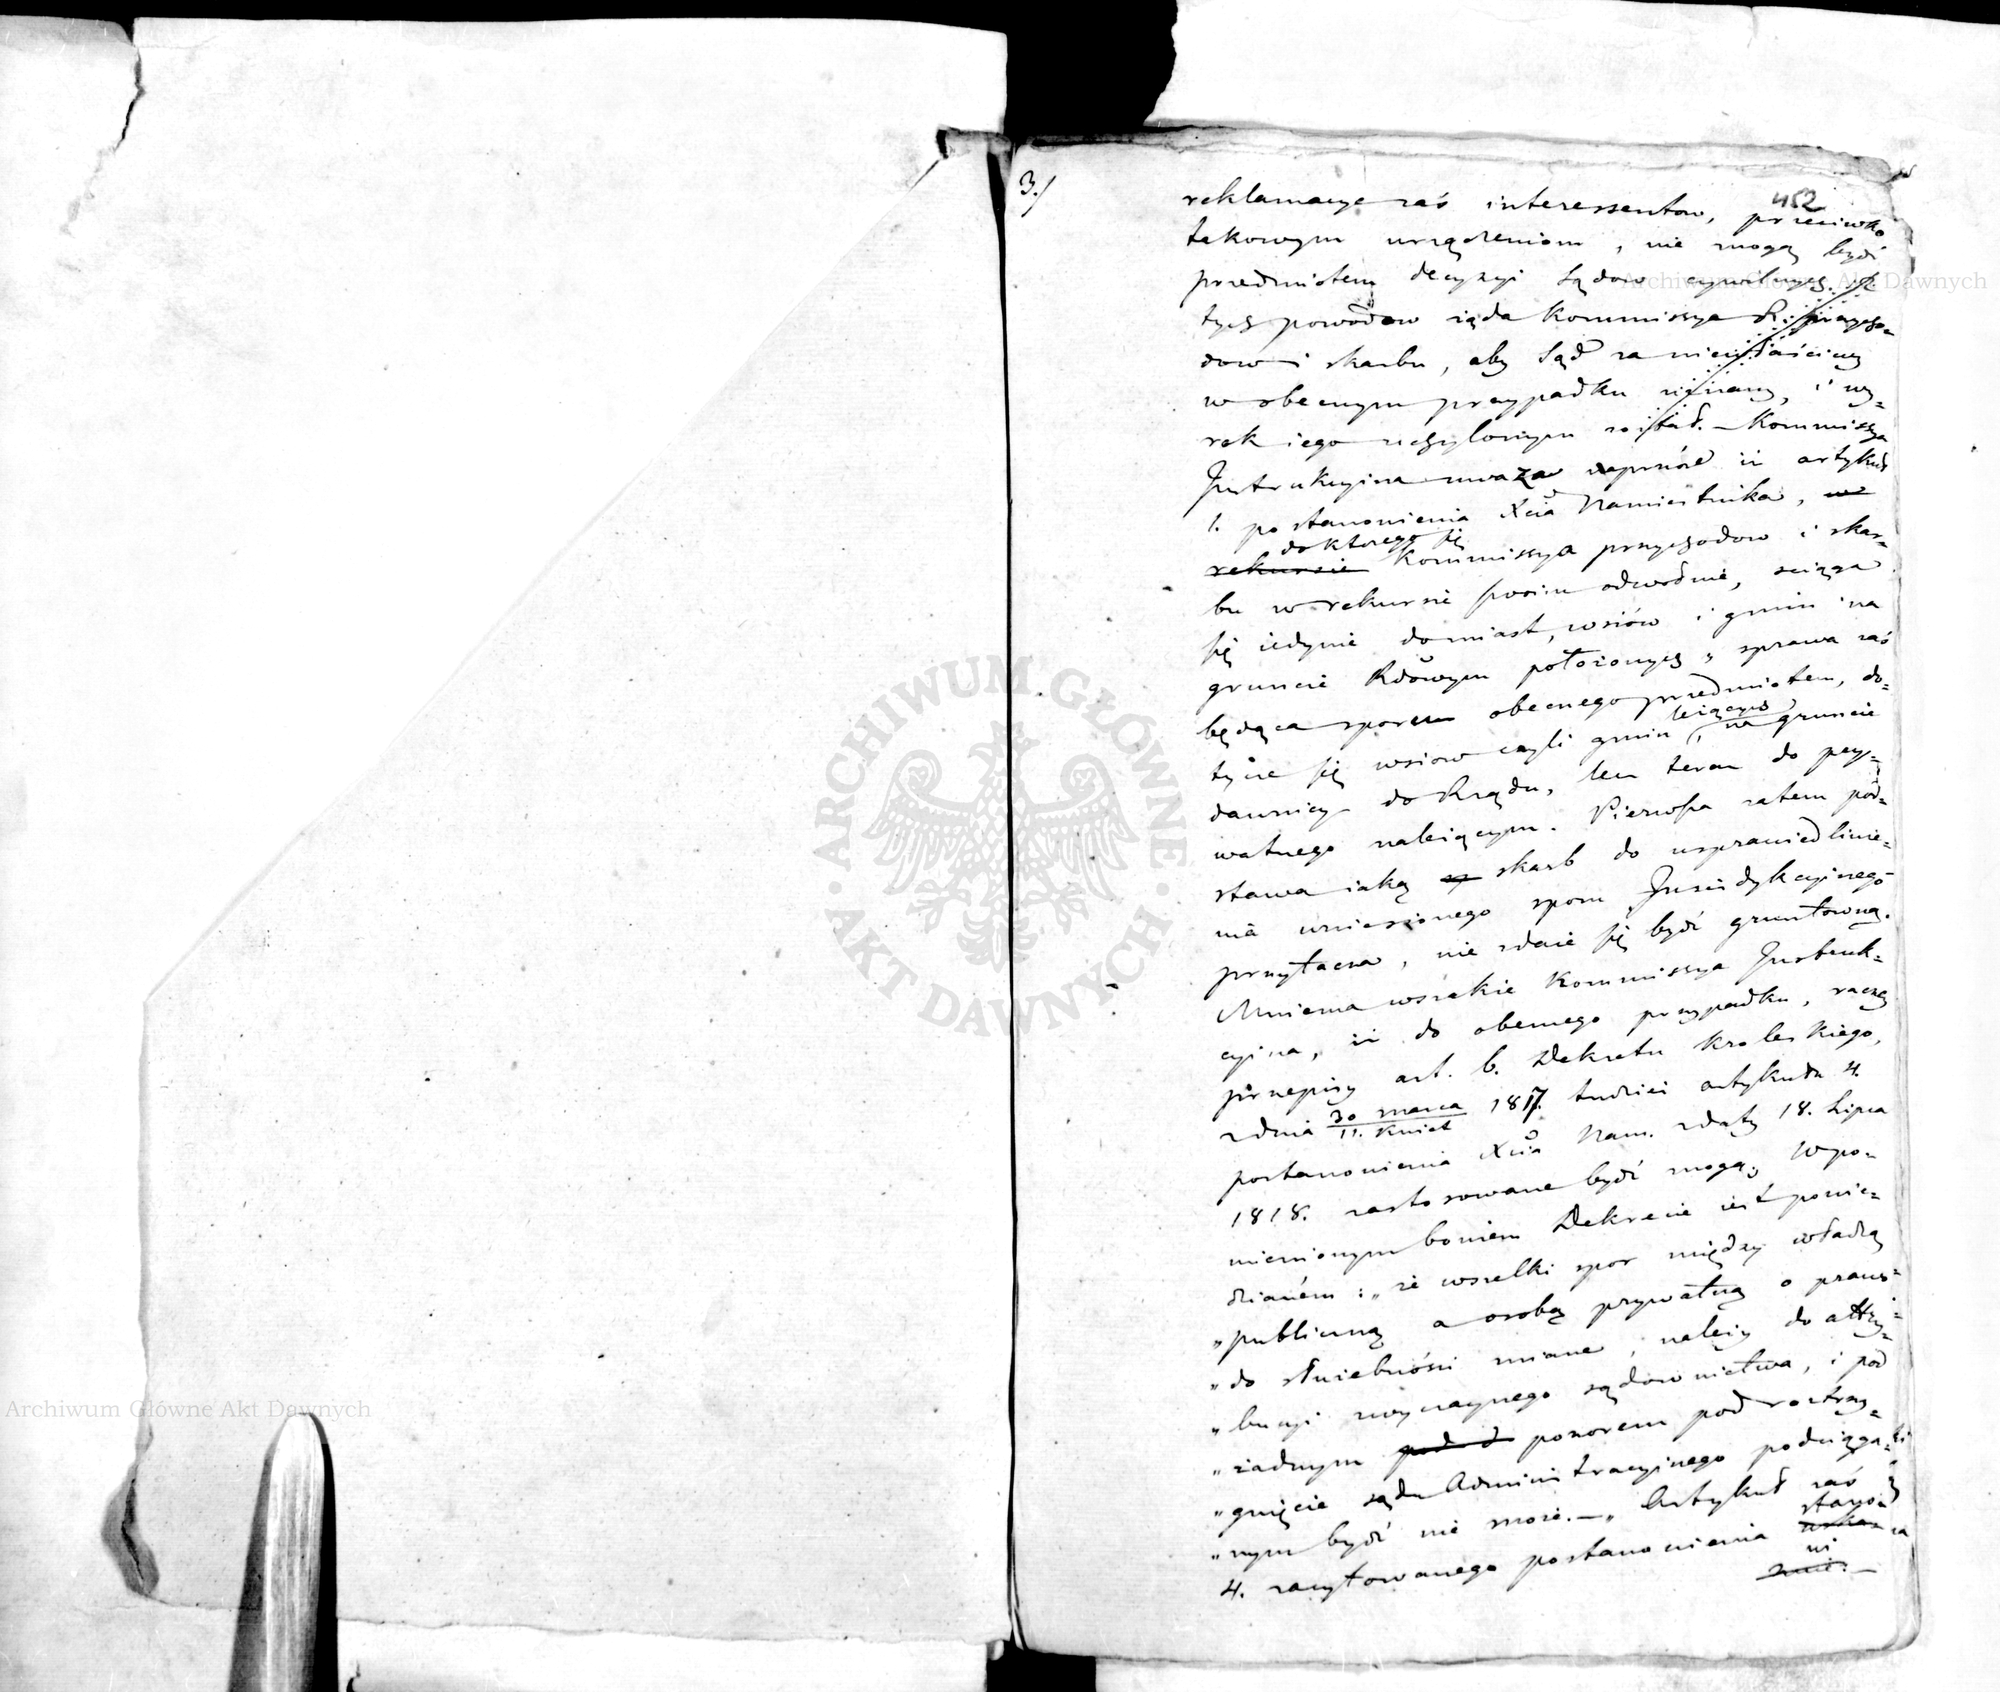 3./
452
reklamacye zaś interessentow, przeciwko
takowym urządzeniom, nie mogą bydź
przedmiotem decyzyi Sądow cywilnych. Z
tych powodow żąda Kommissya R. Przycho-
dow i skarbu, aby Sąd za niewłaściwy
w obecnym przypadku uznany, i wy-
rok iego uchylonym został. — Kommissya
Instrukcyina uważa naprzód iż artykuł
1. postanowienia Xcia Namiestnika, w
do ktorego się
rekursie Kommissya przychodow i skar-
bu w rekursie swoim odwołuie, sciąga
się iedynie do miast, wsiów i gmin na
gruncie Rdowym położonych, sprawa zaś
będąca sporem obecnego przedmiotem, do-
leżących
tycze się wsiow czyli gmin, na gruncie
dawniey do Rządu, lecz teraz do pry-
watnego należącym. Pierwsza zatem pod-
stawa iaką skarb do usprawiedliwie-
nia wniesionego sporu Jurisdykcyinego
przytacza, nie zdaie się bydź gruntowną.
Mniema wszakże Kommissya Instruk-
cyina, iż do obecnego przypadku, raczey
przepisy art. 6. Dekretu Krolewskiego,
z dnia 30 marca / 11. Kwiet 1817. tudzież artykułu 4.
postanowienia Xcia Nam. z daty 18. Lipca
1818. zastosowane bydź mogą, Wspo-
mnionym bowiem Dekrecie iest powie-
dzianem: „że wszelki spor między władzą
„publiczną a osobą prywatną o prawo
„do służebności miane, należy do attry-
„bucyi zwyczaynego sądownictwa, i pod
„żadnym pod d pozorem pod roztrzy-
„gnięcie sądu Administracyinego podciąga-
„nym bydź nie może. —„ Artykuł zaś
stano-
4. zacytowanego postanowienia wska-
wi